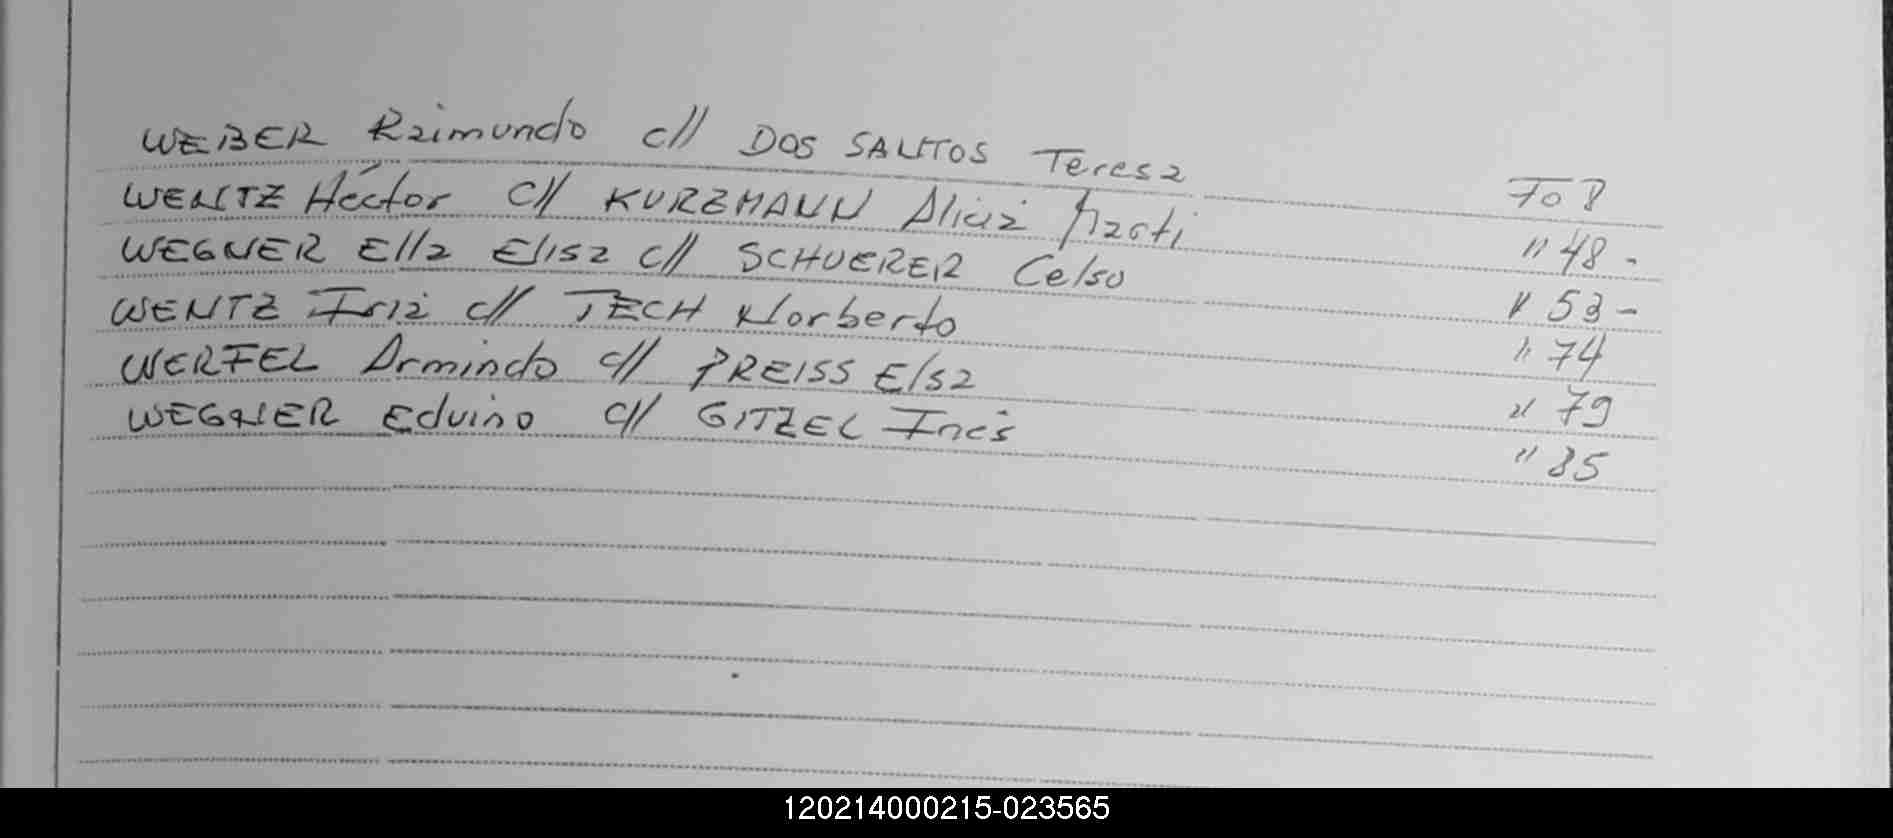 WEBER Raimundo c// DOS SANTOS Teresa Fo 8
WENTZ Héctor c// KURZMANN Alicia Marti " 48 -
WEGNER Ella Elisa c// SCHUERER Celso " 53 -
WENTZ Iria c// TECH Norberto " 74
WERFEL Armindo c// PREISS Elsa " 79
WEGNER Eduino c// GITZEL Inés " 85
120214000215-023565